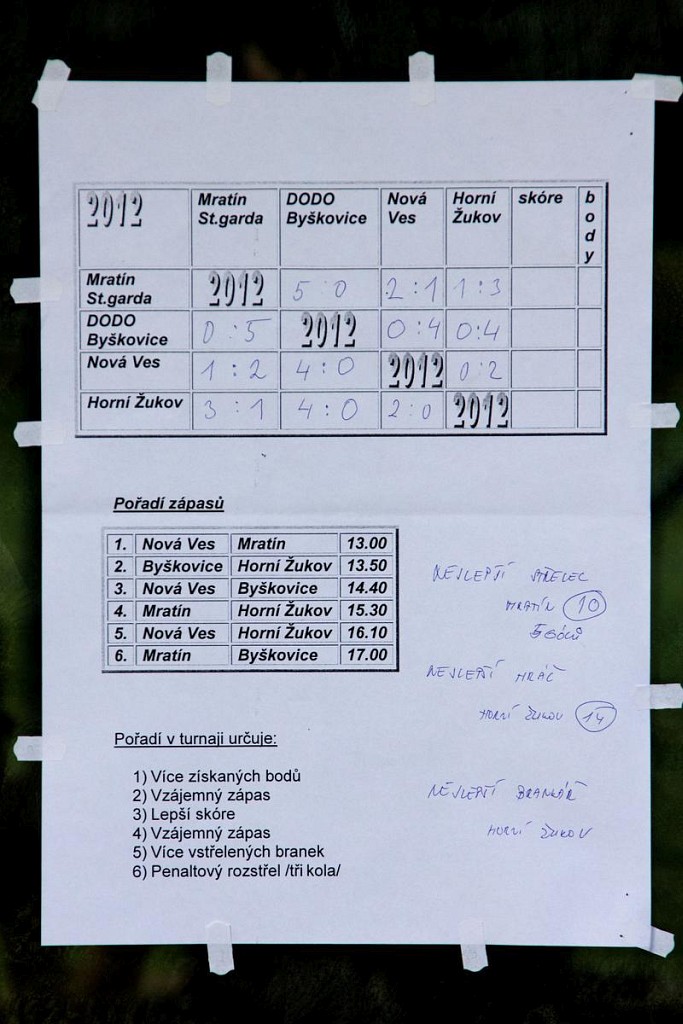 2012 Mratín DODO Nová Horní skóre body
St.garda Byškovice Ves Žukov
Mratín St.garda 2012 5 : 0 2 : 1 1 : 3
DODO Byškovice 0 : 5 2012 0:4 0:4
Nová Ves 1 : 2 4 : 0 2012 0:2
Horní Žukov 3 : 1 4 : 0 2:0 2012
Pořadí zápasů
1. Nová Ves Mratín 13.00
2. Byškovice Horní Žukov 13.50
3. Nová Ves Byškovice 14.40
4. Mratín Horní Žukov 15.30
5. Nová Ves Horní Žukov 16.10
6. Mratín Byškovice 17.00
NEJLEPŠÍ STŘELEC
MRATÍN 10
5 GÓLŮ
NEJLEPŠÍ HRÁČ
HORNÍ ŽUKOV 14
NEJLEPŠÍ BRANKÁŘ
HORNÍ ŽUKOV
Pořadí v turnaji určuje:
1) Více získaných bodů
2) Vzájemný zápas
3) Lepší skóre
4) Vzájemný zápas
5) Více vstřelených branek
6) Penaltový rozstřel /tři kola/